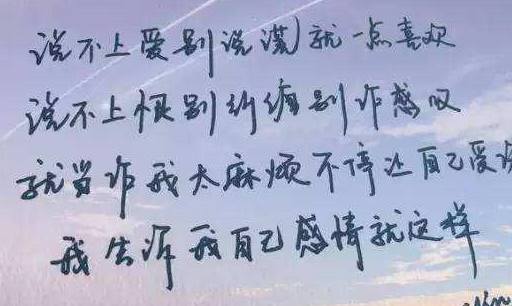 说不上爱别说谎 就一点喜欢
说不上恨别纠缠别作感叹
就当作我太麻烦不停让自己受
我告诉我自己感情就这样